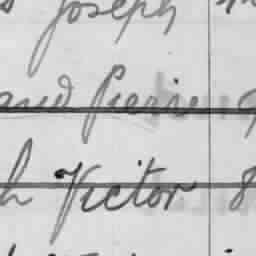 Joseph
and Pierre
h Victor 8